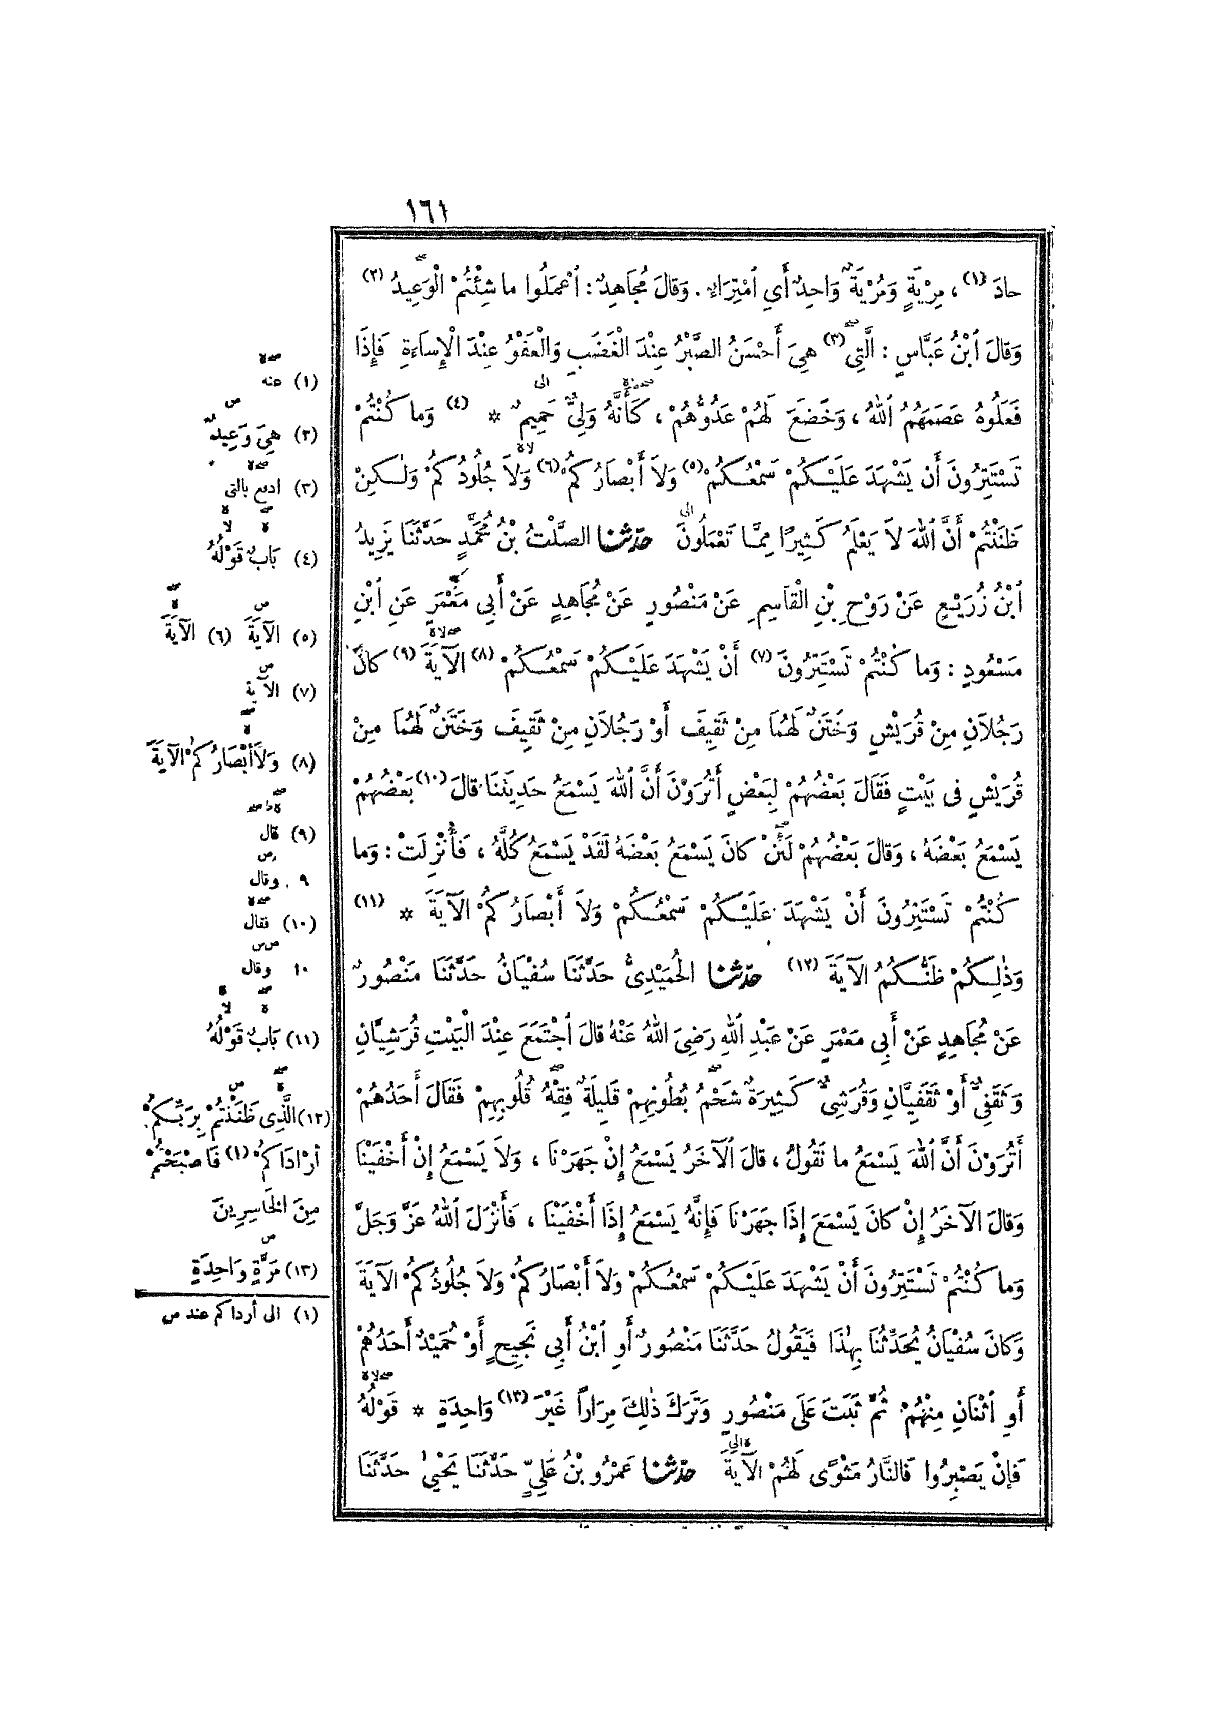 ١٦١
حادَ (١) ، مِرْيَةٍ وَمُرْيَةٌ وَاحِدٌ أَيِ ٱمْتِرَاءٍ . وَقالَ مُجَاهِدٌ : ٱعْمَلُوا ما شِئْتُمْ الْوَعِيدُ (٢)
وَقالَ ٱبْنُ عَبَّاسٍ : الَّتِي (٣) هِيَ أَحْسَنُ الصَّبْرُ عِنْدَ الْغَضَبِ وَالْعَفْوُ عِنْدَ الْإِسَاءَةِ فَإِذَا
فَعَلُوهُ عَصَمَهُمُ ٱللهُ ، وَخَضَعَ لَهُمْ عَدُوُّهُمْ ، كَأَنَّهُ وَلِيٌّ حَمِيمٌ * (٤) وَما كُنْتُمْ
تَسْتَتِرُونَ أَنْ يَشْهَدَ عَلَيْكُمْ سَمْعُكُمْ (٥) وَلاَ أَبْصَارُكُمْ (٦) وَلاَ جُلُودُكُمْ وَلٰكِنْ
ظَنَنْتُمْ أَنَّ ٱللهَ لاَ يَعْلَمُ كَثِيرًا مِمَّا تَعْمَلُونَ حدّثنا الصَّلْتُ بْنُ مُحَمَّدٍ حَدَّثَنَا يَزِيدُ
ٱبْنُ زُرَيْعٍ عَنْ رَوْحِ بْنِ الْقَاسِمِ عَنْ مَنْصُورٍ عَنْ مُجَاهِدٍ عَنْ أَبِي مَعْمَرٍ عَنِ ٱبْنِ
مَسْعُودٍ : وَما كُنْتُمْ تَسْتَتِرُونَ (٧) أَنْ يَشْهَدَ عَلَيْكُمْ سَمْعُكُمْ (٨) الْآيَةَ (٩) كانَ
رَجُلاَنِ مِنْ قُرَيْشٍ وَخَتَنٌ لَهُمَا مِنْ ثَقِيفَ أَوْ رَجُلاَنِ مِنْ ثَقِيفَ وَخَتَنٌ لَهُمَا مِنْ
قُرَيْشٍ فِى بَيْتٍ فَقَالَ بَعْضُهُمْ لِبَعْضٍ أَتُرَوْنَ أَنَّ ٱللهَ يَسْمَعُ حَدِيثَنَا قالَ (١٠) بَعْضُهُمْ
يَسْمَعُ بَعْضَهُ ، وَقالَ بَعْضُهُمْ لَئِنْ كانَ يَسْمَعُ بَعْضَهُ لَقَدْ يَسْمَعُ كُلَّهُ ، فَأُنْزِلَتْ : وَما
كُنْتُمْ تَسْتَتِرُونَ أَنْ يَشْهَدَ عَلَيْكُمْ سَمْعُكُمْ وَلاَ أَبْصَارُكُمْ الْآيَةَ * (١١)
وَذٰلِكُمْ ظَنُّكُمُ الْآيَةَ (١٢) حدّثنا الحُمَيْدِىُّ حَدَّثَنَا سُفْيَانُ حَدَّثَنَا مَنْصُورٌ
عَنْ مُجَاهِدٍ عَنْ أَبِي مَعْمَرٍ عَنْ عَبْدِ ٱللهِ رَضِىَ اللهُ عَنْهُ قالَ ٱجْتَمَعَ عِنْدَ الْبَيْتِ قُرَشِيَّانِ
وَثَقَفِىٌّ أَوْ ثَقَفِيَّانِ وَقُرَشِىٌّ كَثِيرَةٌ شَحْمُ بُطُونِهِمْ قَلِيلَةٌ فِقْهُ قُلُوبِهِمْ فَقَالَ أَحَدُهُمْ
أَتُرَوْنَ أَنَّ ٱللهَ يَسْمَعُ ما نَقُولُ ، قالَ الآخَرُ يَسْمَعُ إِنْ جَهَرْنَا ، وَلاَ يَسْمَعُ إِنْ أَخْفَيْنَا
وَقالَ الآخَرُ إِنْ كانَ يَسْمَعُ إِذَا جَهَرْنَا فَإِنَّهُ يَسْمَعُ إِذَا أَخْفَيْنَا ، فَأَنْزَلَ ٱللهُ عَزَّ وَجَلَّ
وَما كُنْتُمْ تَسْتَتِرُونَ أَنْ يَشْهَدَ عَلَيْكُمْ سَمْعُكُمْ وَلاَ أَبْصَارُكُمْ وَلاَ جُلُودُكُمْ الْآيَةَ
وَكانَ سُفْيَانُ يُحَدِّثُنَا بِهٰذَا فَيَقُولُ حَدَّثَنَا مَنْصُورٌ أَوِ ٱبْنُ أَبِي نَجِيحٍ أَوْ حُمَيْدٌ أَحَدُهُمْ
أَوِ ٱثْنَانِ مِنْهُمْ ثُمَّ ثَبَتَ عَلَى مَنْصُورٍ وَتَرَكَ ذٰلِكَ مِرَاراً غَيْرَ (١٣) وَاحِدَةٍ * قَوْلُهُ
فَإِنْ يَصْبِرُوا فَالنَّارُ مَثْوًى لَهُمْ الْآيَةَ حدّثنا عَمْرُو بْنُ عَلِيٍّ حَدَّثَنَا يَحْيىٰ حَدَّثَنَا
(١) عنه
(٢) هِيَ وَعِيدٌ
(٣) ادفع بالتى
(٤) بَابٌ قَوْلُهُ
(٥) الآيَةَ (٦) الآيَةَ
(٧) الآية
(٨) وَلاَ أَبْصَارُكُمْ الآيَةَ
(٩) قال
٩ . وقال
(١٠) فقال
١٠ وقال
(١١) بَابٌ قَوْلُهُ
(١٢) الَّذِى ظَنَنْتُمْ بِرَبِّكُمْ
أَرْدَاكُمْ (١) فَاصْبَحْتُمْ
مِنَ الْخَاسِرِينَ
(١٣) مَرَّةٍ وَاحِدَةٍ
(١) الى أرداكم عند ص